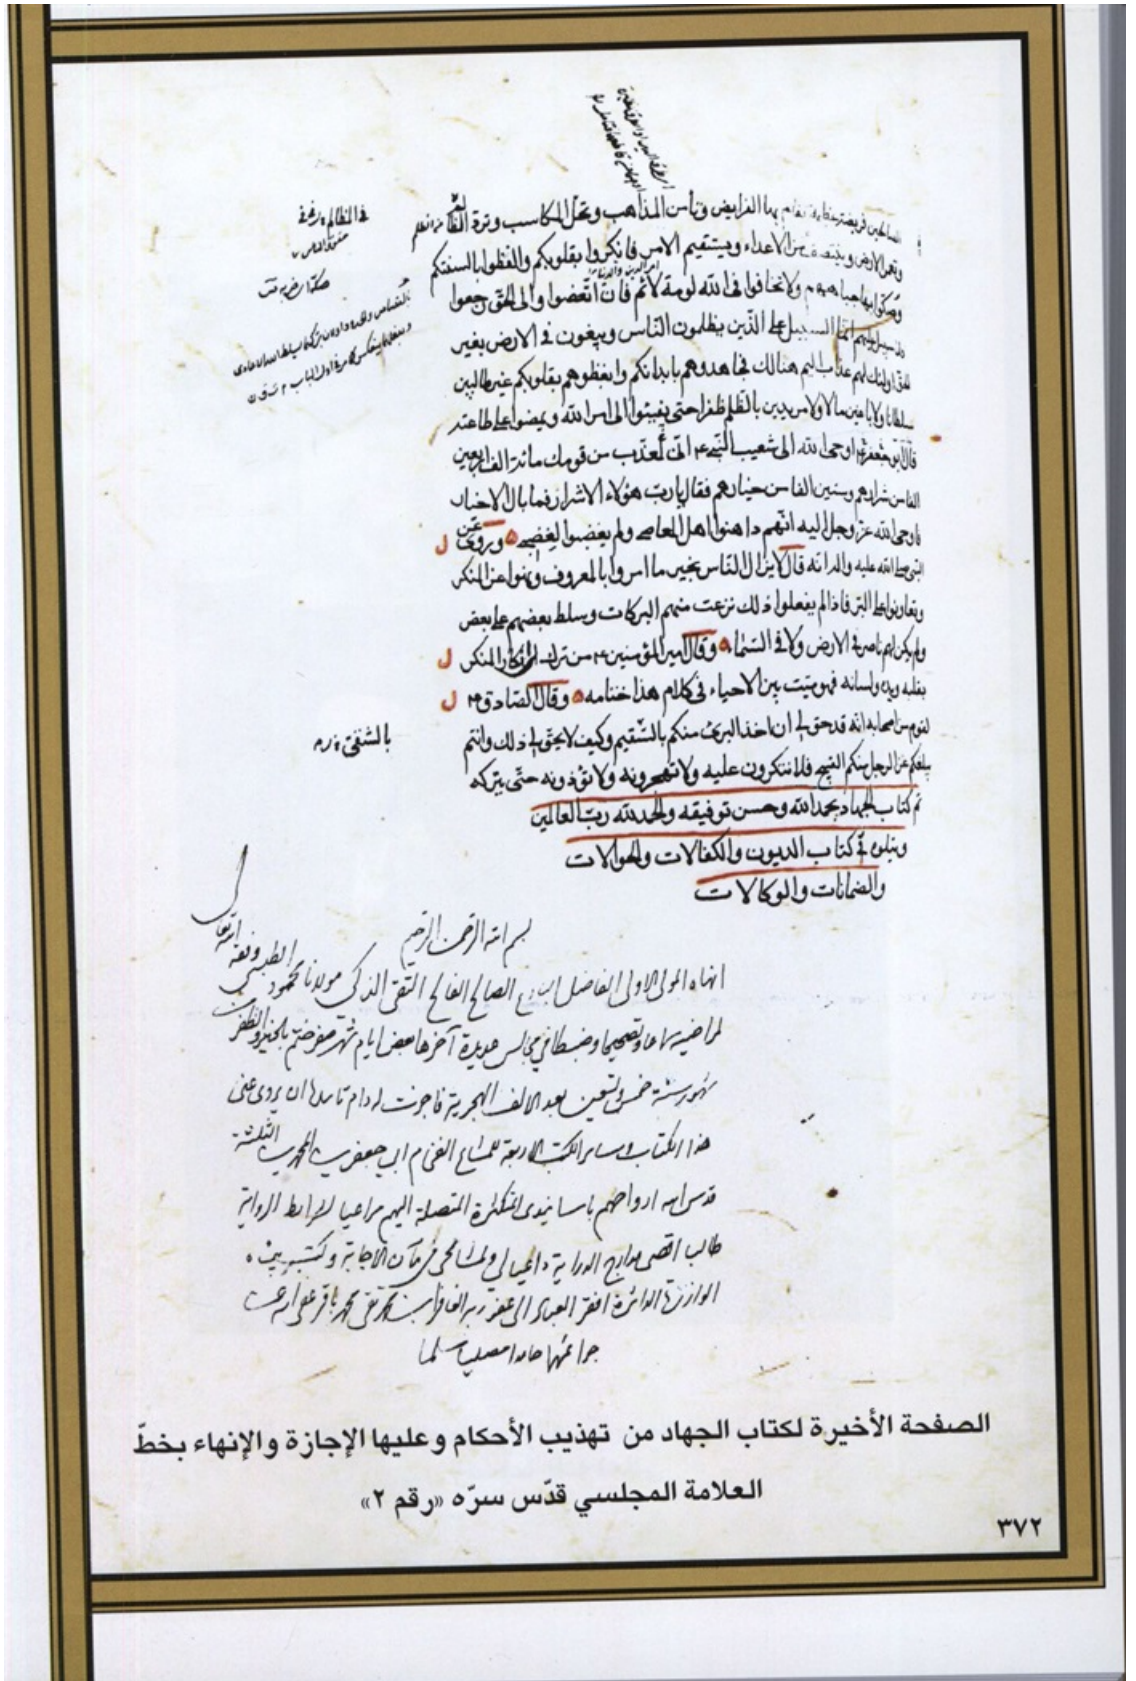 الصالحين فريضة عظيمة بها تقام بها الفرايض وتأمن المذاهب وتحل المكاسب وترد المظالم
وتعمر الارض وينتصف من الاعداء ويستقيم الامر فانكروا بقلوبكم والفظوا بالسنتكم
وصكوا بها جباههم ولا تخافوا فى الله لومة لائم فان اتعضوا والى الحق رجعوا
فلا سبيل عليهم انما السبيل على الذين يظلمون الناس ويبغون فى الارض بغير
الحق اولئك لهم عذاب اليم هنالك فجاهدوهم بابدانكم وابغضوهم بقلوبكم غير طالبين
سلطانا ولا باغين مالا ولا مريدين بالظلم ظفرا حتى يفيئوا الى امر الله ويمضوا على طاعته
قال ابو جعفر ع اوحى الله الى شعيب النبى ع انى لمعذب من قومك مائة الف اربعين
الفا من شرارهم وستين الفا من خيارهم فقال يا رب هؤلاء الاشرار فما بال الاخيار
فاوحى الله عز وجل اليه انهم داهنوا اهل المعاصى ولم يغضبوا لغضبى ٥ وروى عن
النبى صلى الله عليه واله انه قال لا يزال الناس بخير ما امروا بالمعروف ونهوا عن المنكر
وتعاونوا على البر فاذا لم يفعلوا ذلك نزعت منهم البركات وسلط بعضهم على بعض
ولم يكن لهم ناصر فى الارض ولا فى السماء ٥ وقال امير المؤمنين ع من ترك انكار المنكر
بقلبه ويده ولسانه فهو ميت بين الاحياء فى كلام هذا ختامه ٥ وقال الصادق ع
لقوم من اصحابه انه قد حق لى ان اخذ البرىء منكم بالسقيم وكيف لا يحق لى ذلك وانتم
يبلغكم عن الرجل منكم القبيح فلا تنكرون عليه ولا تهجرونه ولا تؤذونه حتى يتركه
تم كتاب الجهاد بحمد الله وحسن توفيقه والحمد لله رب العالمين
ويتلوه فى كتاب الديون والكفالات والحوالات
والضمانات والوكالات
بسم الله الرحمن الرحيم
انهاه المولى الاولى الفاضل الصالح الفالح التقى الذكى مولانا محمود الطبسى وفقه الله تعالى
لمراضيه سماعا وتصحيحا وضبطا فى مجالس عديدة آخرها بعض ايام شهر صفر ختم بالخير والظفر من
شهور سنة خمس وتسعين بعد الالف الهجرية فاجزت له دام تاييده ان يروى عنى
هذا الكتاب وساير الكتب الاربعة للمشايخ العظام ابى جعفرين المحمدين الثلثة
قدس الله ارواحهم باسانيدى المتكثرة المتصلة اليهم مراعيا لشرايط الرواية
طالبا اقصى مدارج الدراية داعيا لى ولمشايخى فى مآن الاجابة وكتب بيمناه
الوازرة الداثرة افقر العباد الى عفو ربه الغافر ابن محمد تقى محمد باقر عفى الله عن
جرائمهما حامدا مصليا مسلما
الصفحة الأخيرة لكتاب الجهاد من تهذيب الأحكام وعليها الإجازة والإنهاء بخطّ
العلامة المجلسي قدّس سرّه «رقم ٢»
٣٧٢